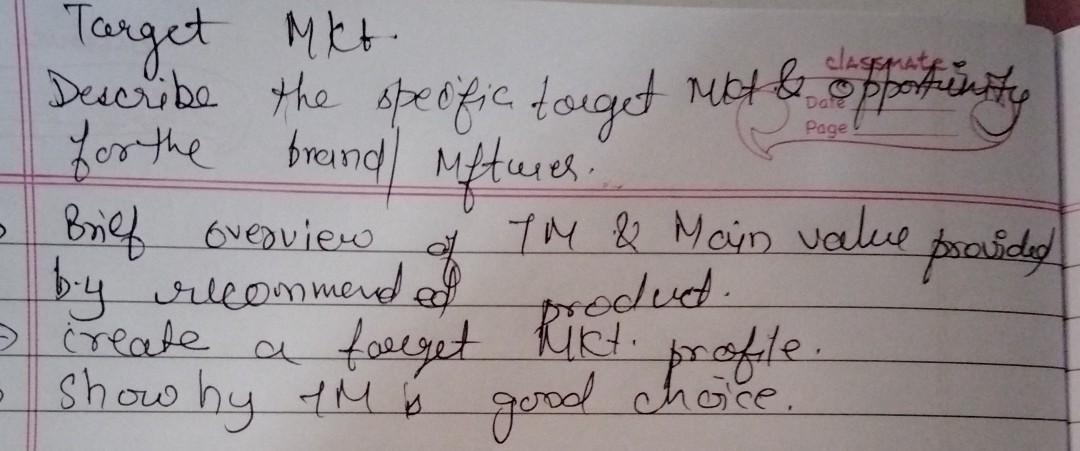 Target Mkt.
classmate
Describe the specific target Mkt & opportunity
Date
for the brand/ Mftures.
Page
Brief overview of TM & Main value provided
by recommended product.
create a target Mkt. profile.
Show hy TM is good choice.